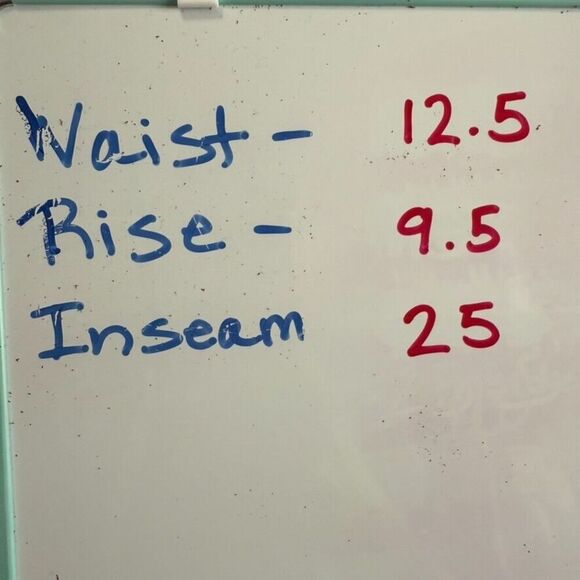 Waist - 12.5
Rise - 9.5
Inseam 25